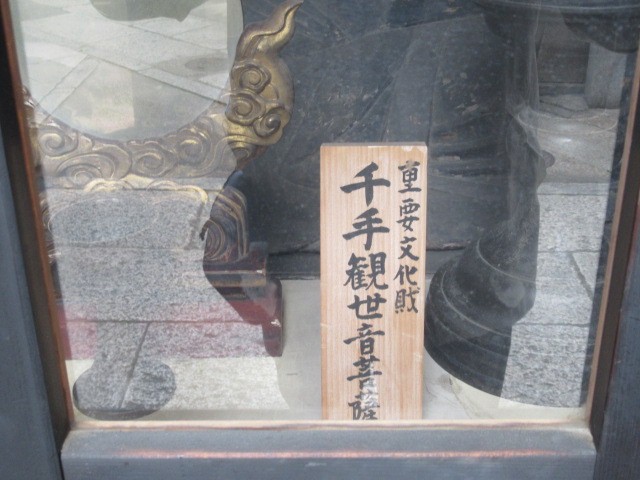 重要文化財
千手観世音菩薩